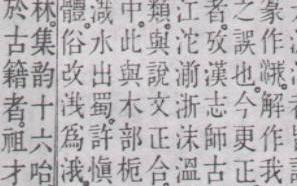 篆作 解作我
之誤也。今更正
者。攷漢志師古
江沱湔浙沫溫
類。與說文正合
中。此與木部梔
水出蜀。許愼
體。俗改 爲涐。
林集韵十六咍
於古籍者。祖才